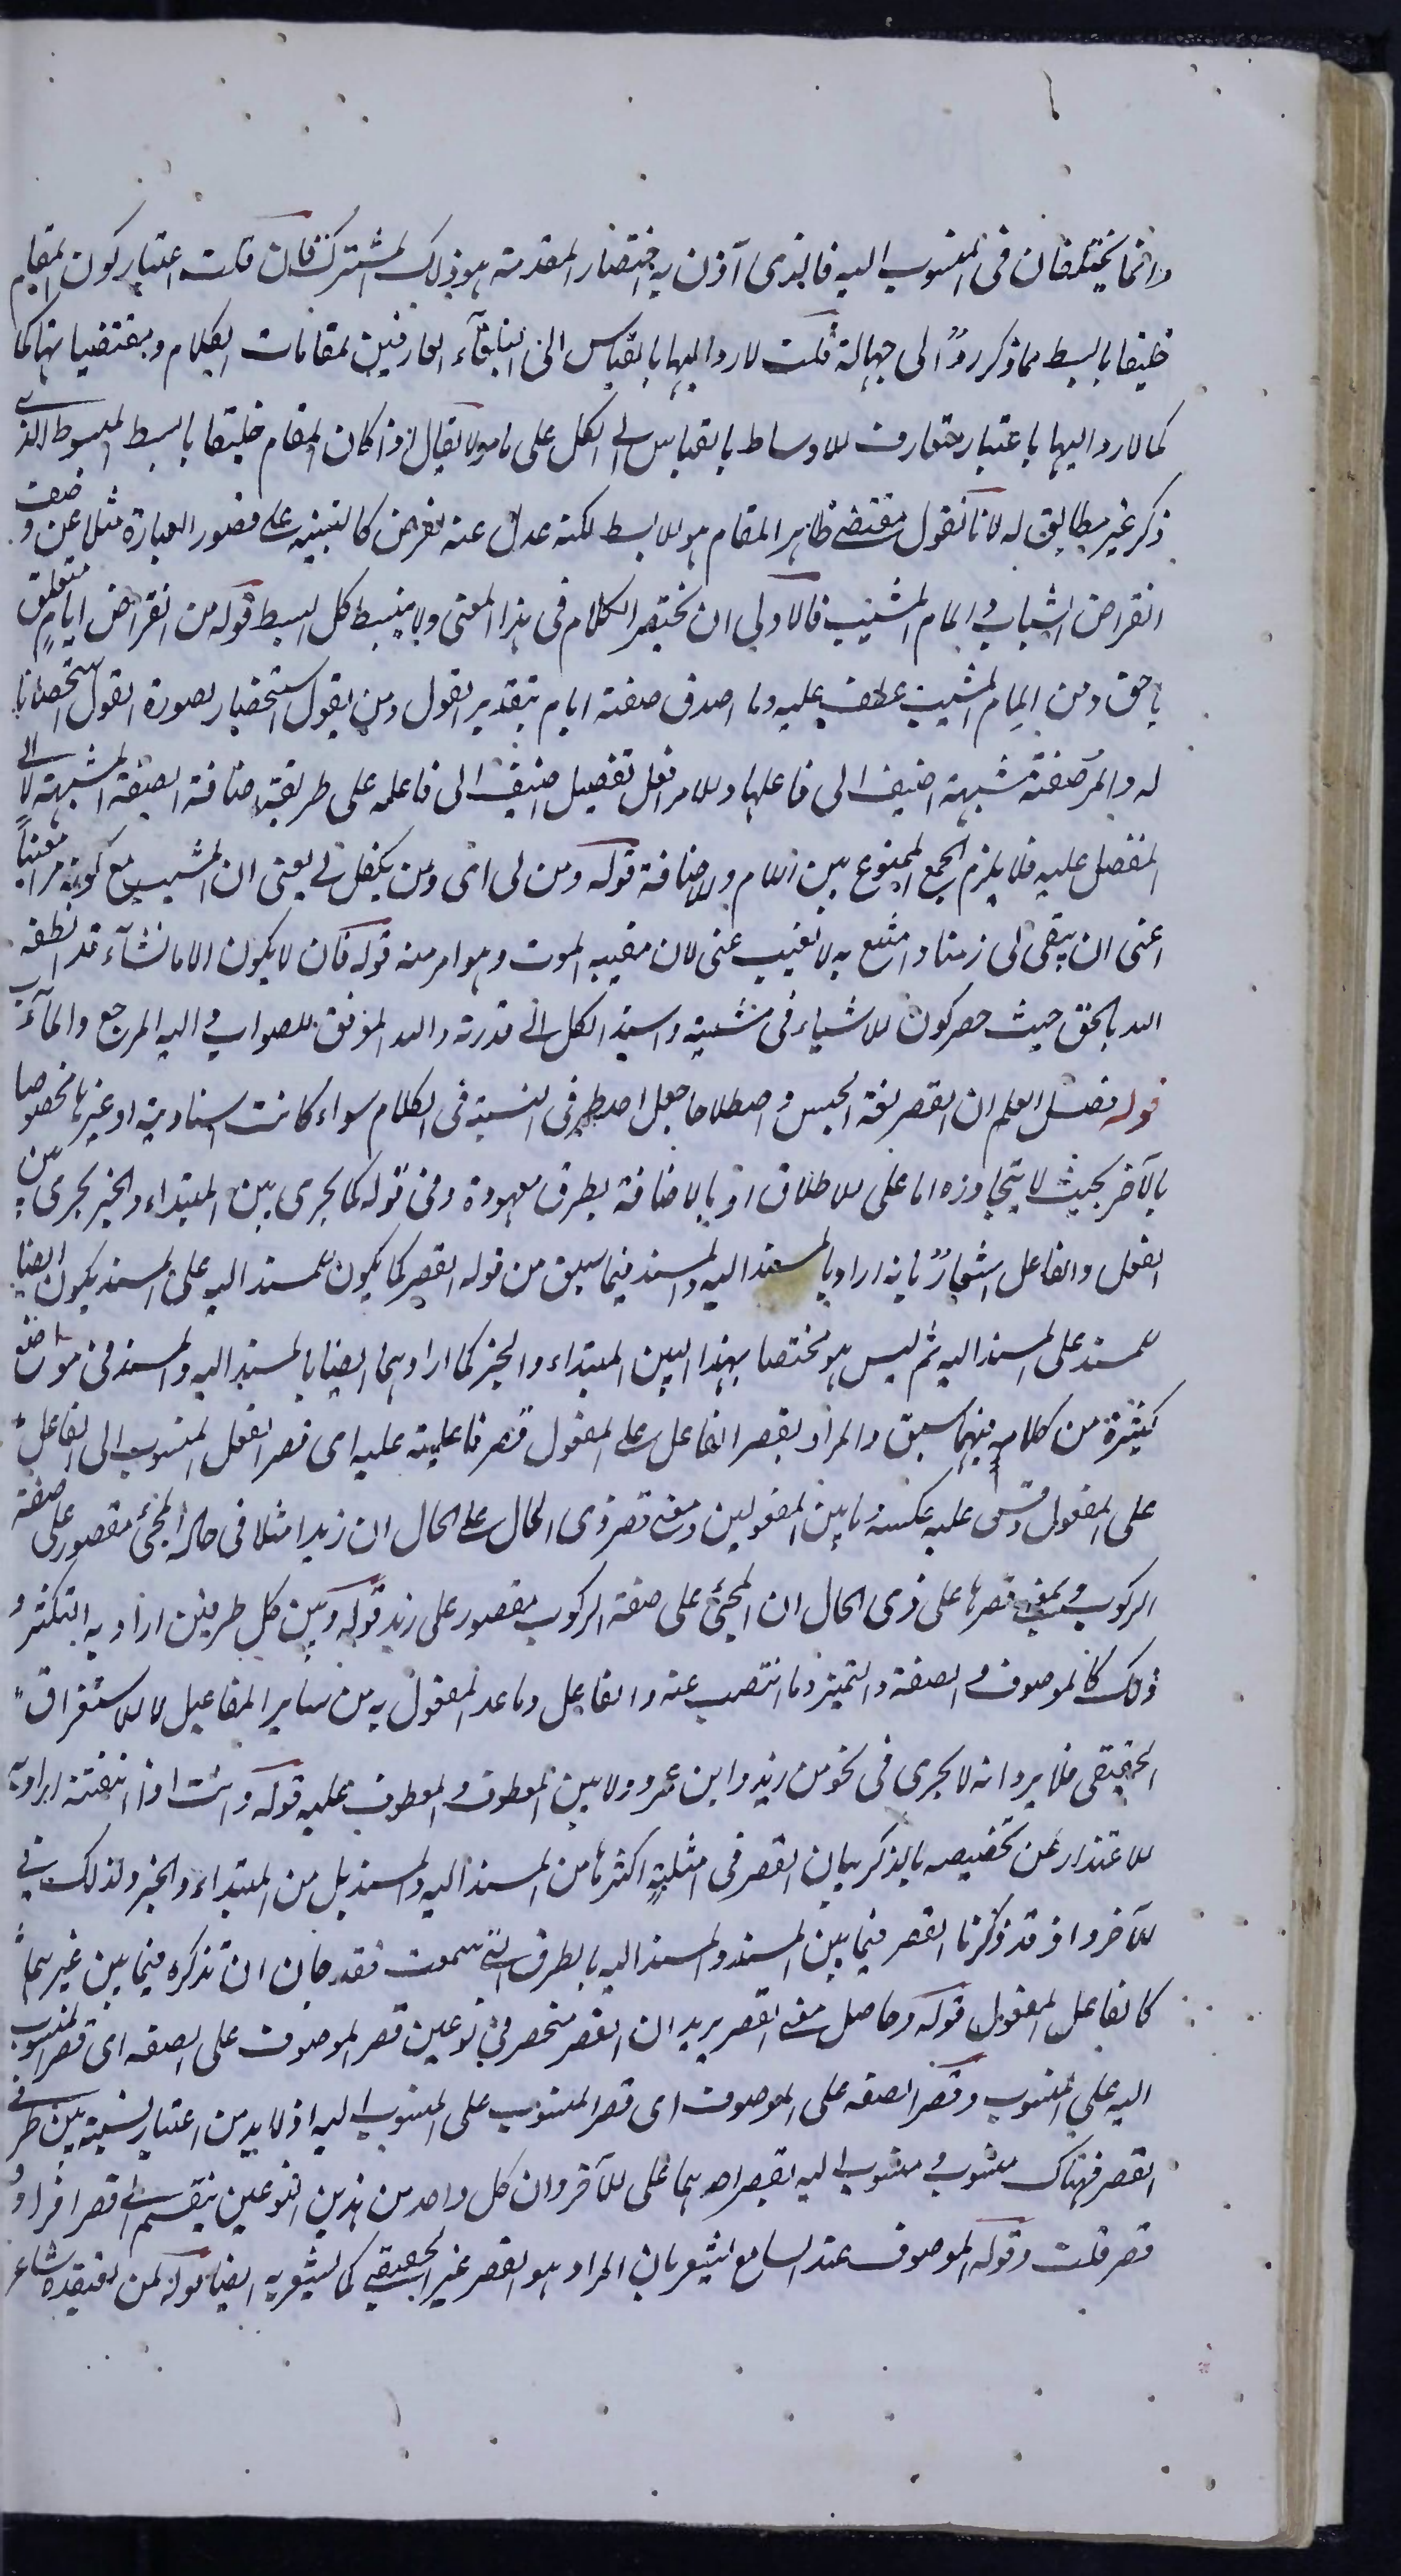 وانما يختلفان فى المنسوب اليه فالذى آذن به اختصار المقدمة هو ذلك المشترك فان قلت اعتبار كون المقام
خليقا بالبسط مما ذكر ردٌ الى جهالة قلت لا رد اليها بالقياس الى البلغآء العارفين لمقامات الكلام ومقتضياتها كما
كما لا رد اليها باعتبار متعارف الاوساط بالقياس الى الكل على ما مر لا يقال اذا كان المقام خليقا بالبسط المبسوط الذى
ذكر غير مطابق له لانا نقول مقتضى ظاهر المقام هو البسط لكنه عدل عنه لغرض كالتنبيه على قصور العبارة مثلا عن وصف
انقراض الشباب والمام المشيب فالاولى ان يختصر الكلام فى هذا المعنى ولا يبسط كل البسط قوله من انقراض ايام متعلق
باحق ومن المام المشيب عطف عليه وما اصدق صفة ايام بتقدير القول ومن يقول استحضار لصورة القول استحضانا
له والمر صفة مشبهة اضيف الى فاعلها والامر افعل تفضيل اضيف الى فاعله على طريقة اضافة الصفة المشبهة لا الى
المفضل عليه فلا يلزم الجمع الممنوع بين اللام والاضافة قوله ومن لى اى ومن يكفل لى يعنى ان المشيب مع كونه مرا مغيبا
اعنى ان يبقى لى زمنا وامتع به لا تغيب عنى لان مغيبه الموت وهو امر منه قوله فان لا يكون الا ما نشآء قد انطقه
الله بالحق حيث حصر كون الاشياء فى مشيته واسند الكل الى قدرته والله الموفق للصواب واليه المرجع والمآب
قوله فصل اعلم ان القصر لغة الحبس واصطلاحا جعل احد طرفى النسبة فى الكلام سواء كانت اسنادية او غيرها مخصوصا
بالآخر بحيث لا يتجاوزه اما على الاطلاق او بالاضافة بطرق معهودة وفى قوله كما يجرى بين المبتداء والخبر يجرى بين
الفعل والفاعل اشعارٌ بانه اراد بالمسند اليه والمسند فيما سبق من قوله القصر كما يكون للمسند اليه على المسند يكون ايضا
للمسند على المسند اليه ثم ليس هو مختصا بهذا البين المبتداء والخبر كما ارادهما ايضا بالمسند اليه والمسند فى مواضع
كثيرة من كلامه فيما سبق والمراد بقصر الفاعل على المفعول قصر فاعليته عليه اى قصر الفعل المنسوب الى الفاعل
على المفعول وقس عليه عكسه وما بين المفعولين ومعنى قصر ذى الحال على الحال ان زيدا مثلا فى حالة المجئ مقصور على صفة
الركوب ومعنى قصرها على ذى الحال ان المجئ على صفة الركوب مقصور على زيد قوله وبين كل طرفين اراد به التكثر و
ذلك كالموصوف والصفة والتميز وما انتصب عنه والفاعل وما عدا المفعول به من ساير المفاعيل لا الاستغراق
الحقيقى فلا يرد انه لا يجرى فى نحو من زيد وابن عمرو ولا بين المعطوف والمعطوف عليه قوله وانت اذا اتقنته اراد به
الاعتذار عن تخصيصه بالذكر بيان القصر فى امثلة اكثرها من المسند اليه والمسند بل من المبتداء والخبر ولذلك فى
الآخر واذ قد ذكرنا القصر فيما بين المسند والمسند اليه بالطرق التى سمعت فقد حان ان نذكره فيما بين غيرهما
كالفاعل المفعول قوله وحاصل معنى القصر يريد ان القصر منحصر فى نوعين قصر الموصوف على الصفه اى قصر المنسوب
اليه على المنسوب وقصر الصفه على الموصوف اى قصر المنسوب على المنسوب اليه اذ لا بد من اعتبار نسبة بين طرفى
القصر فهناك منسوب ومنسوب اليه يقصر احدهما على الآخر وان كل واحد من هذين النوعين ينقسم الى قصر افراد و
قصر قلب وقوله الموصوف عند السامع يشعر بان المراد هو القصر غير الحقيقى كما يشعر به ايضا قوله لمن يعتقده شاعر